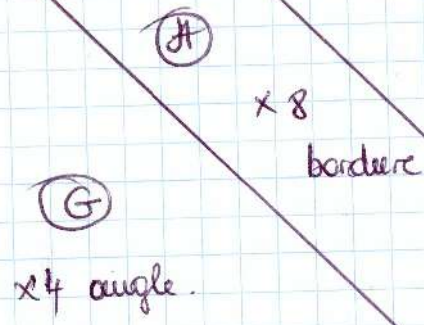 H
× 8
bordure
G
×4 angle.